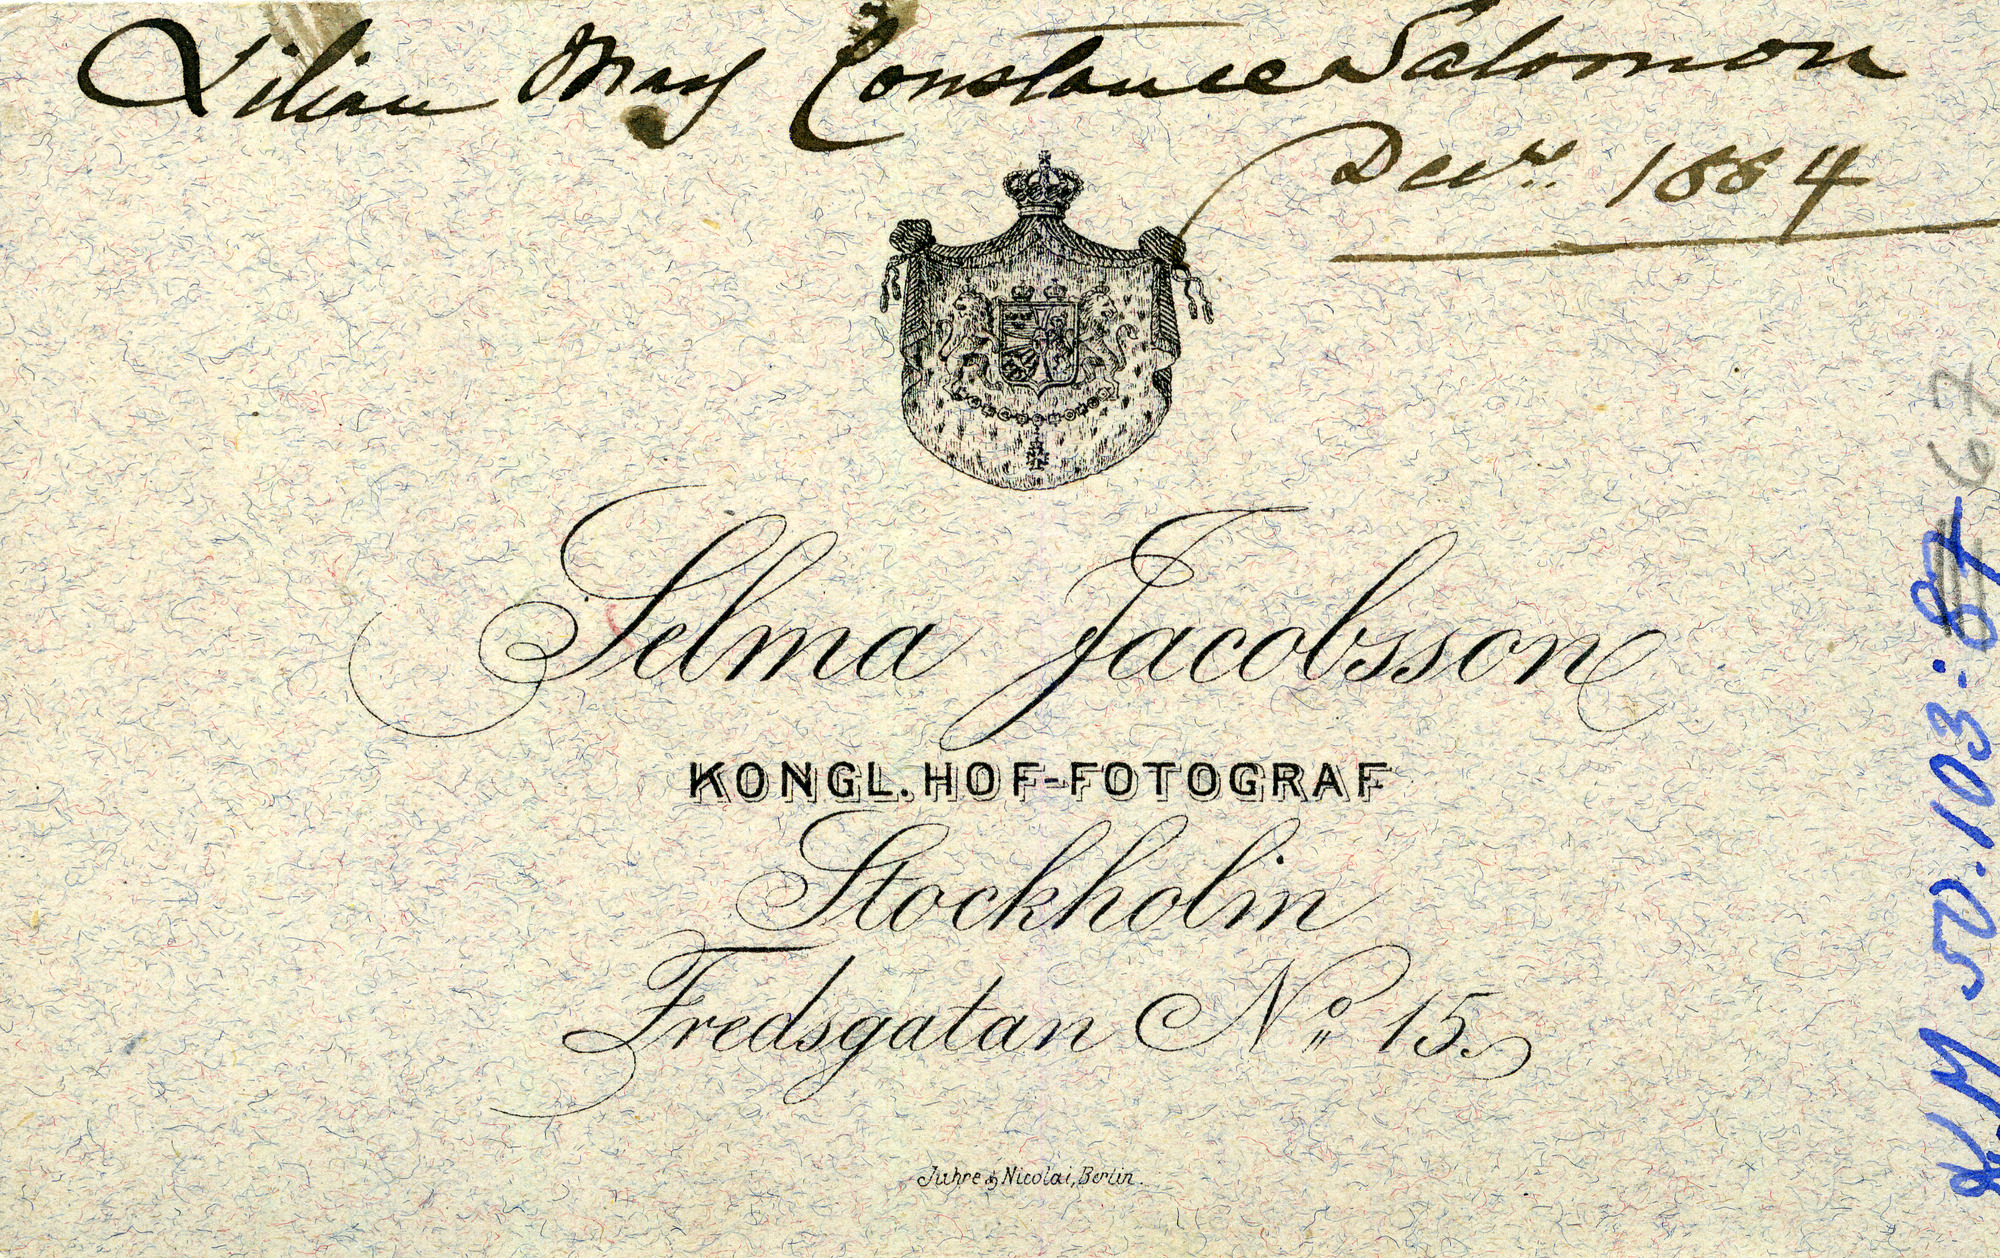 Lilian May Constance Salomon
Decr. 1884
Selma Jacobsson
KONGL. HOF-FOTOGRAF
Stockholm
Fredsgatan No 15.
Juhre & Nicolai, Berlin.
KLM 50.103:87 67